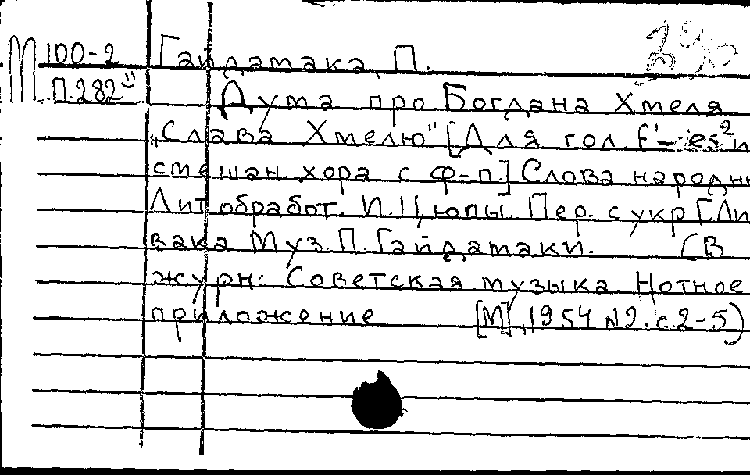 М 100-2 Гайдамака, П.
П.282 Дума про Богдана Хмеля
„Слава Хмелю" [Для гол. f'-es² и
смешан хора с ф-п.] Слова народн
Лит обработ. И. Цюпы. Пер. с укр [Ли
вака Муз. П. Гайдамаки. (В
журн: Советская музыка Нотное
приложение [М], 1954 №2. с. 2-5)